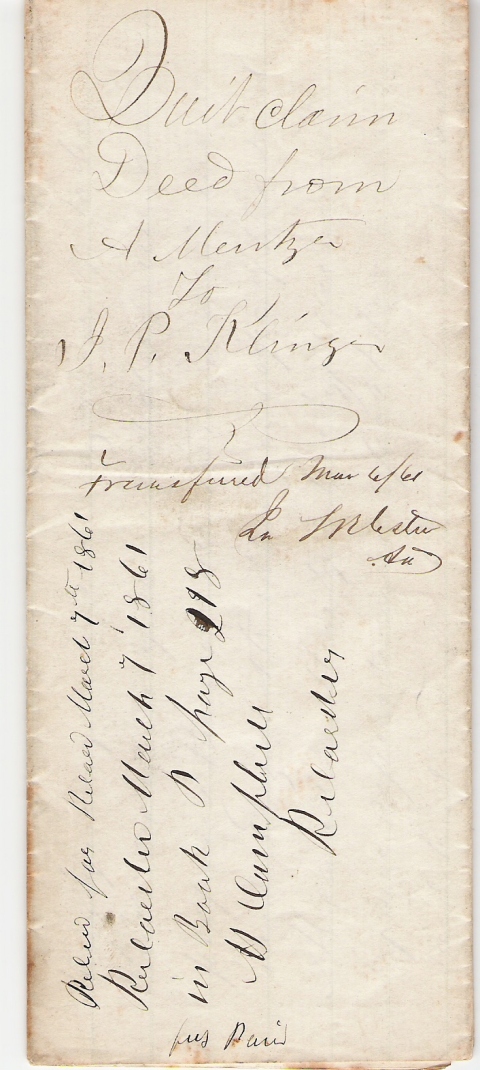 Quit claim
Deed from
A Mentzer
To
J. P. Klinger
Transferred Mar 6/61
Webster
Au
for Record March 7th 1861
Recorded March 7 1861
in Book D page 218
Campbell
Recorder
fees Paid